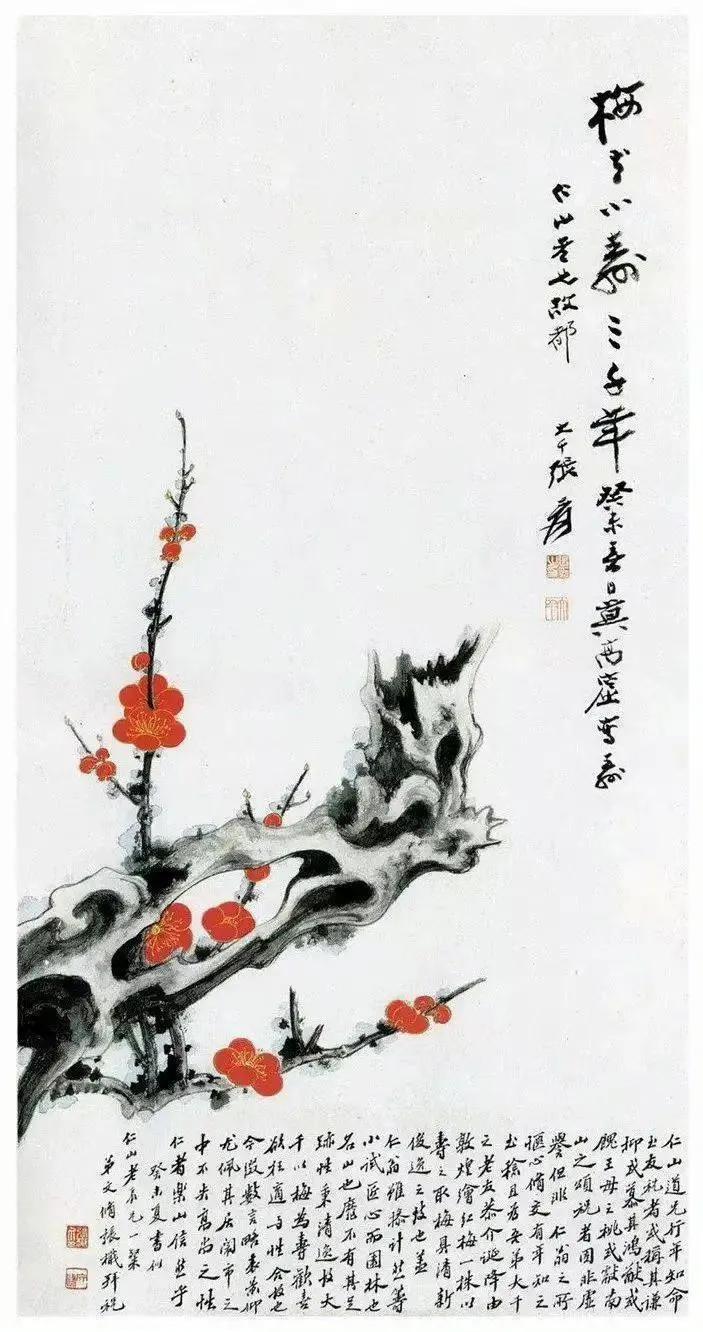 梅花小壽三千年 癸未春日莫高窟寫壽
仁山老兄故都
大千張爰
仁山道兄行年知命
友祝者或稱其謙
抑或慕其鴻猷或
王母之桃或獻南
山之頌祝者固非虛
譽但非仁翁之所
愜心脩交有年知之
稔且為吾弟大千
之老友恭介誕降由
敦煌繪紅梅一株以
壽之取梅具清新
俊逸之故也蓋
仁翁雖擅計然籌
小試匠心而園林也
名山也靡不有其足
跡性秉清逸故大
千以梅為壽歡喜
欲狂適與性合故也
今徵數言略表景仰
尤佩其居鬧市之
中不失高尚之性
仁者樂山信然乎
癸未夏書似
仁山老長兄一粲
弟文脩張楫拜祝